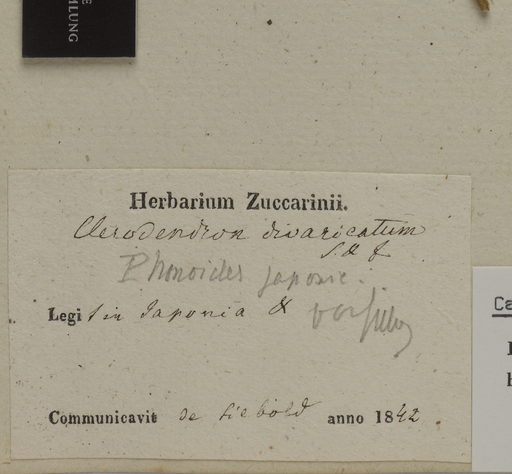 MLUNG
Herbarium Zuccarinii.
Clerodendron divaricatum
S. & Z.
japonic.
Legi t in Japonia &
Communicavit de Siebold anno 1842
Ca